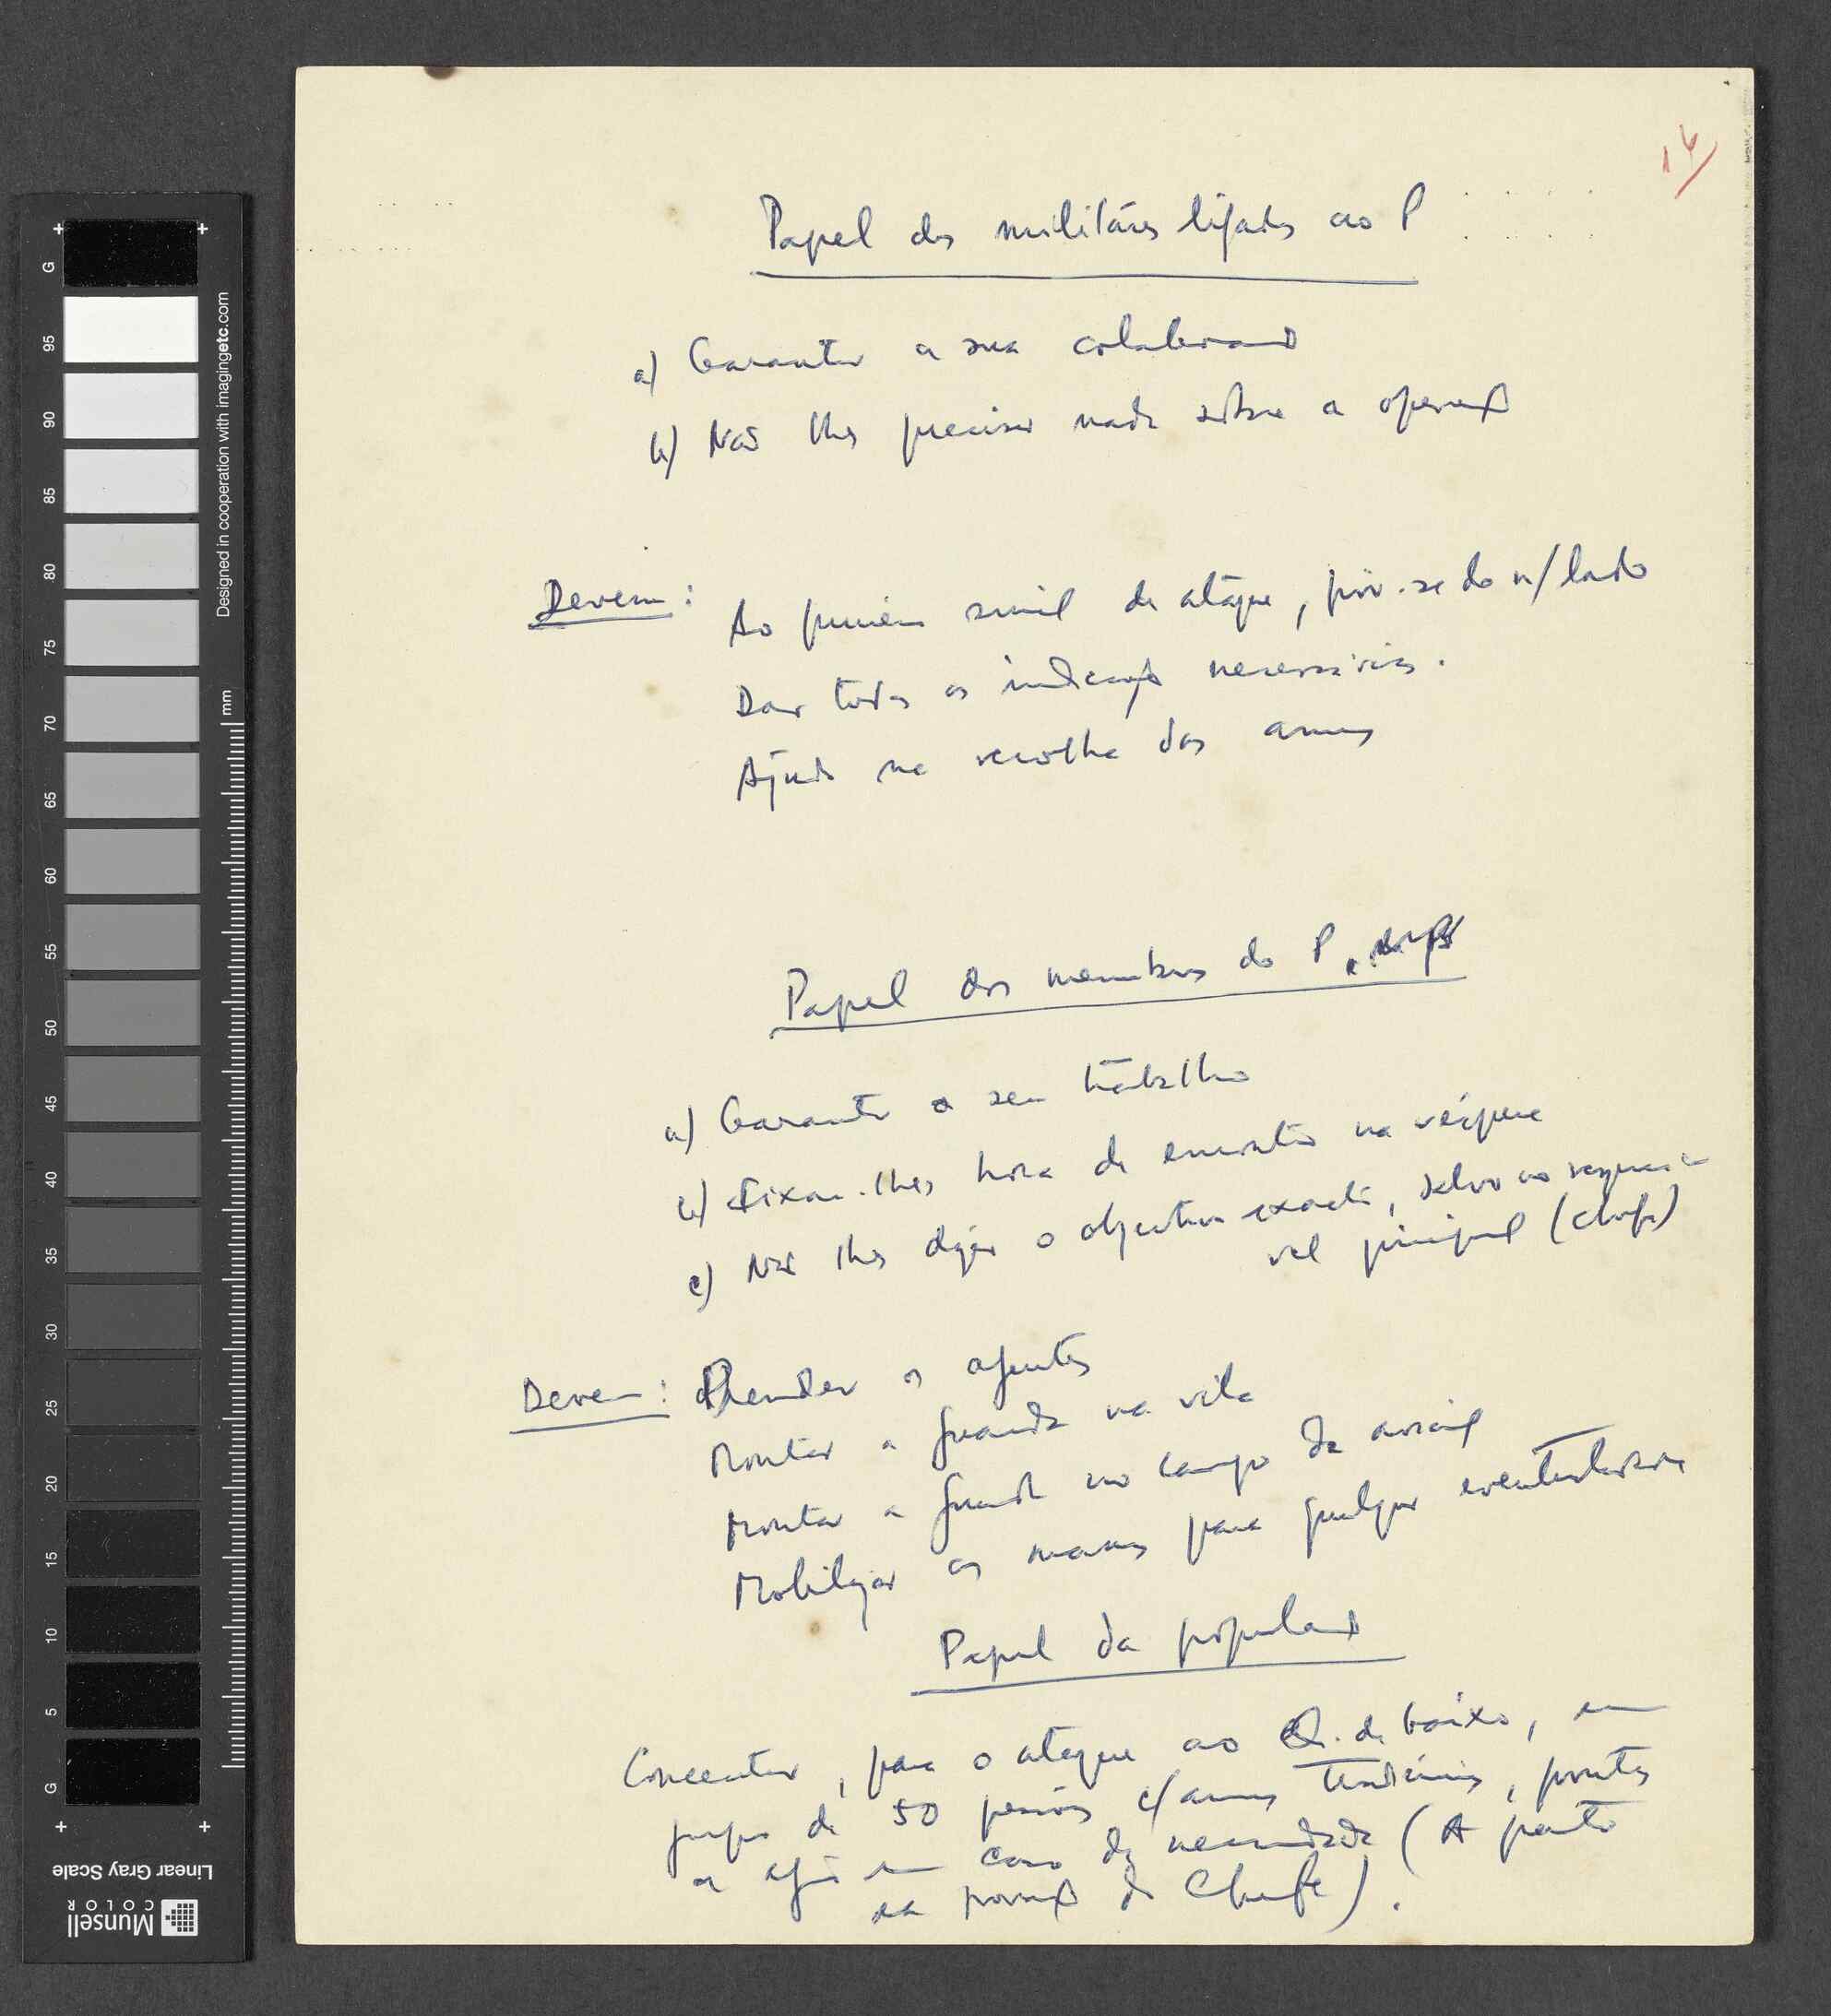 14/
Papel dos militares ligados ao P
a) Garantir a sua colaboração
b) Não lhes precisar nada sobre a operação
Devem: Ao primeiro sinal de ataque, pôr-se do n/ lado
Dar todas as indicações necessárias.
Ajuda na recolha das armas
Papel dos membros do P.
a) Garantir o seu trabalho
b) Fixar-lhes hora de encontro na véspera
c) Não lhes dizer o objectivo exacto, salvo ao responsá-
vel principal (chefe)
Devem: Prender os agentes
Montar a guarda na vila
Montar a guarda no campo de aviação
Mobilizar as massas para qualquer eventualidade
Papel da população
Concentrar, para o ataque ao Q. de baixo, um
grupo de 50 pessoas c/ armas tradicionais, prontas
a agir em caso de necessidade (A gente
da povoação do Chefe).
G
95
90
85
80
75
70
65
60
55
50
45
40
35
30
25
20
15
10
5
G
mm
Designed in cooperation with imagingetc.com
Linear Gray Scale
Munsell
COLOR